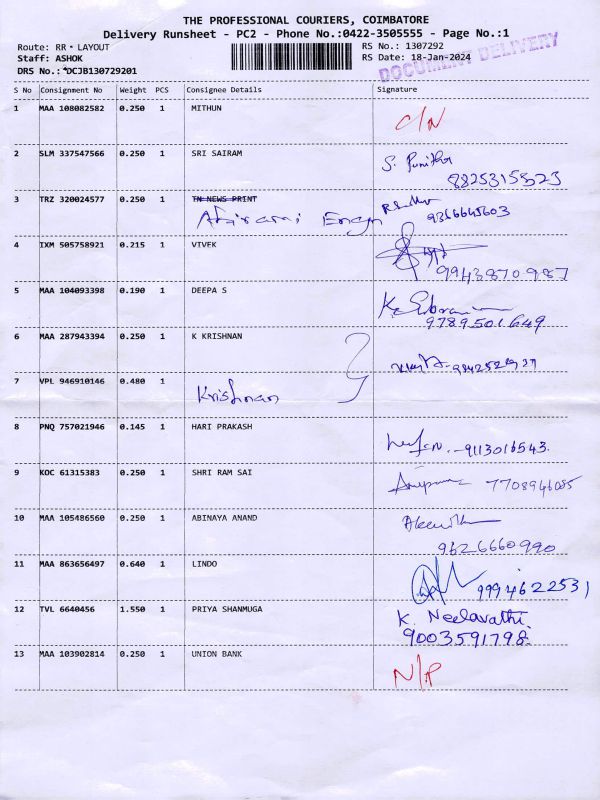 THE PROFESSIONAL COURIERS, COIMBATORE
Delivery Runsheet - PC2 - Phone No.:0422-3505555 - Page No.:1
Route: RR - LAYOUT
Staff: ASHOK
DRS No.: DCJB130729201
RS No.: 1307292
RS Date: 18-Jan-2024
DOCUMENT DELIVERY
S No Consignment No Weight PCS Consignee Details Signature
1 MAA 108082582 0.250 1 MITHUN C/N
2 SLM 337547566 0.250 1 SRI SAIRAM S. Punitha
8825315523
3 TRZ 320024577 0.250 1 TN NEWS PRINT
Abirami Engn 9366645603
4 IXM 505758921 0.215 1 VIVEK
9943870987
5 MAA 104093398 0.190 1 DEEPA S
9789501649
6 MAA 287943394 0.250 1 K KRISHNAN
7 VPL 946910146 0.480 1
Krishnan
8 PNQ 757021946 0.145 1 HARI PRAKASH
9113016543
9 KOC 61315383 0.250 1 SHRI RAM SAI
7708946085
10 MAA 105486560 0.250 1 ABINAYA ANAND
9626660990
11 MAA 863656497 0.640 1 LINDO
9994622531
12 TVL 6640456 1.550 1 PRIYA SHANMUGA K. Neelavathi
9003591798
13 MAA 103902814 0.250 1 UNION BANK N/P